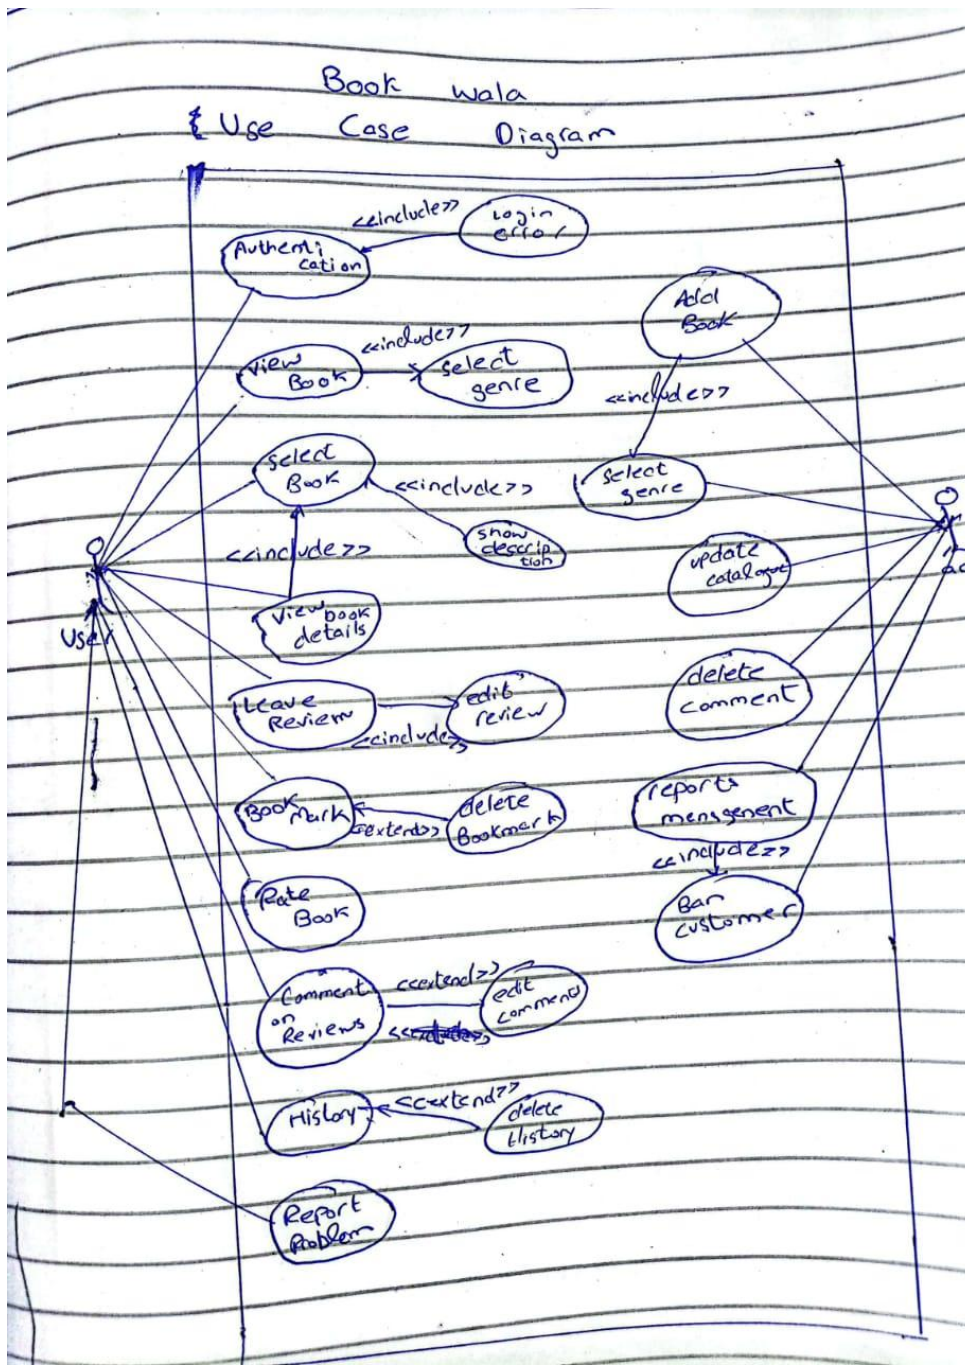 Book wala
Use Case Diagram
<<include>>
Login
error
Authenti
cation
Add
Book
<<include>>
View
Book
select
genre
<<include>>
select
Book
<<include>>
select
genre
show
descrip
tion
<<include>>
update
catalogue
User
View book
details
Leave
Review
edit
review
<<include>>
delete
comment
Book
Mark
<<extend>>
delete
Bookmark
reports
menagement
<<include>>
Rate
Book
Ban
customer
Comment
on
Reviews
<<extend>>
edit
comment
History
<<extend>>
delete
History
Report
Problem